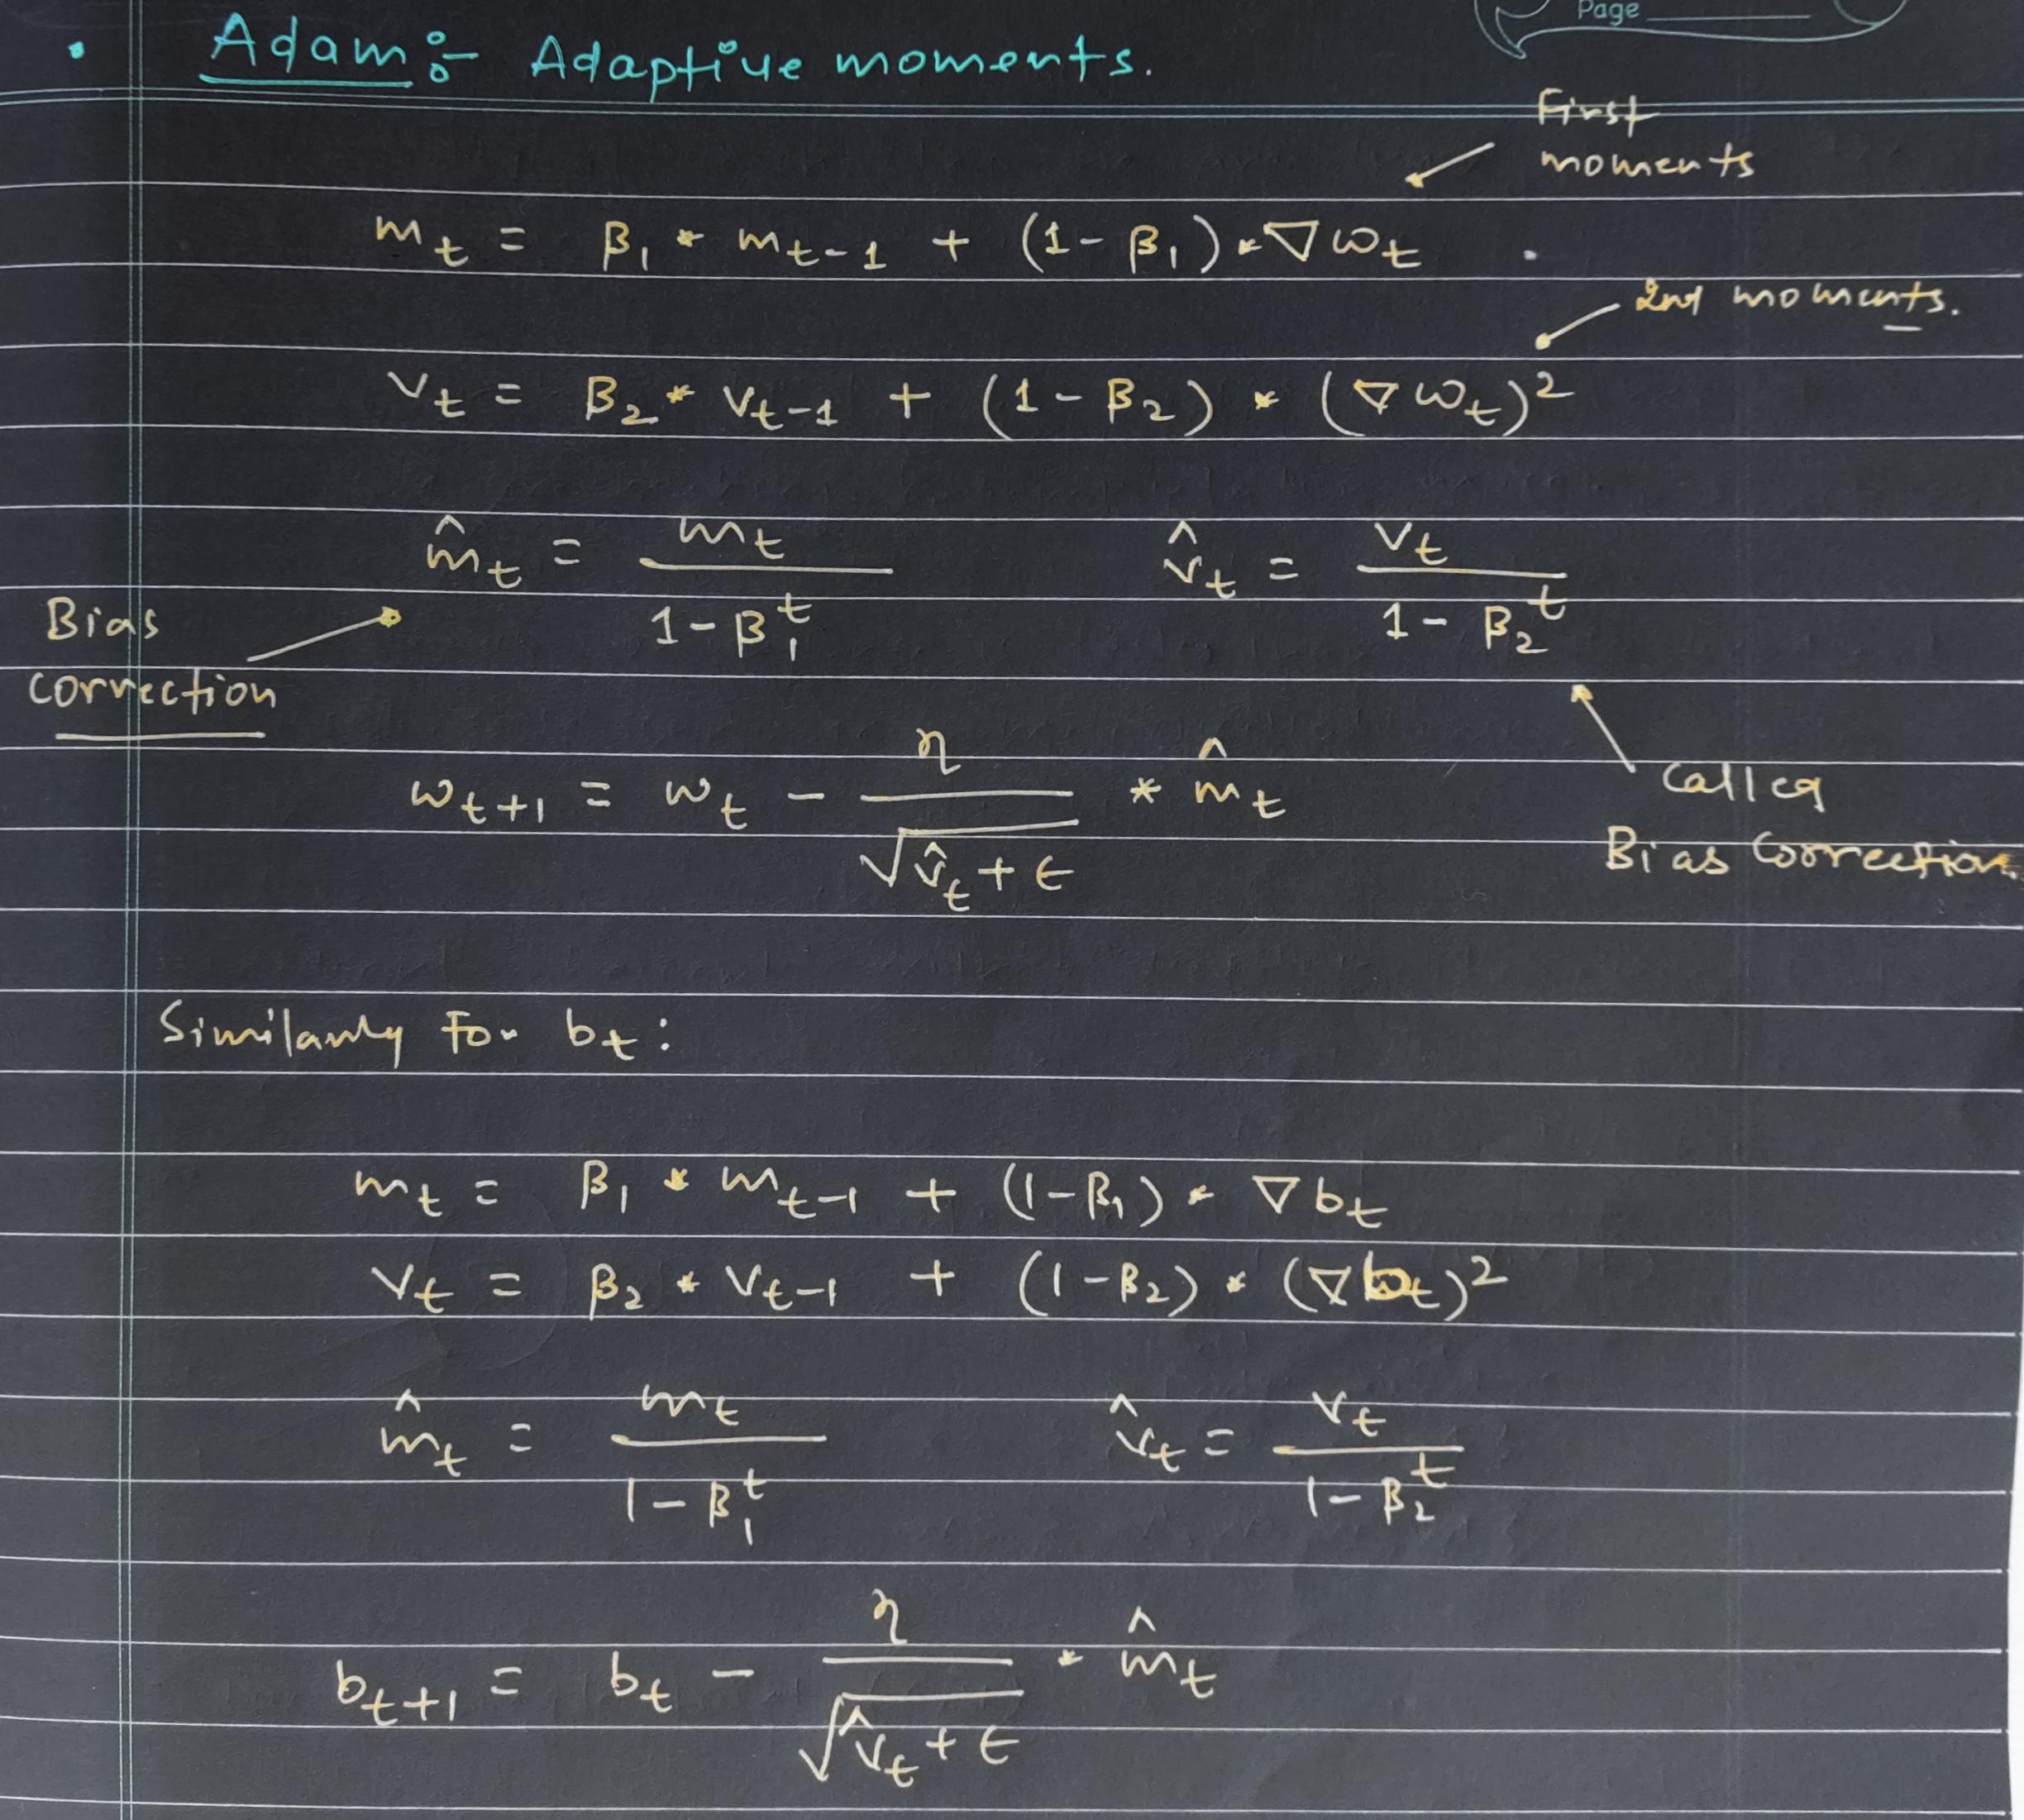 Page
• Adam :- Adaptive moments.
First
moments
m_t = β_1 * m_{t-1} + (1 - β_1) * ∇w_t
2nd moments.
v_t = β_2 * v_{t-1} + (1 - β_2) * (∇w_t)^2
m̂_t = m_t / (1 - β_1^t)    v̂_t = v_t / (1 - β_2^t)
Bias
correction
w_{t+1} = w_t - η / √(v̂_t + ε) * m̂_t
Called
Bias Correction.
Similarly For b_t :
m_t = β_1 * m_{t-1} + (1 - β_1) * ∇b_t
v_t = β_2 * v_{t-1} + (1 - β_2) * (∇b_t)^2
m̂_t = m_t / (1 - β_1^t)    v̂_t = v_t / (1 - β_2^t)
b_{t+1} = b_t - η / √(v̂_t + ε) * m̂_t